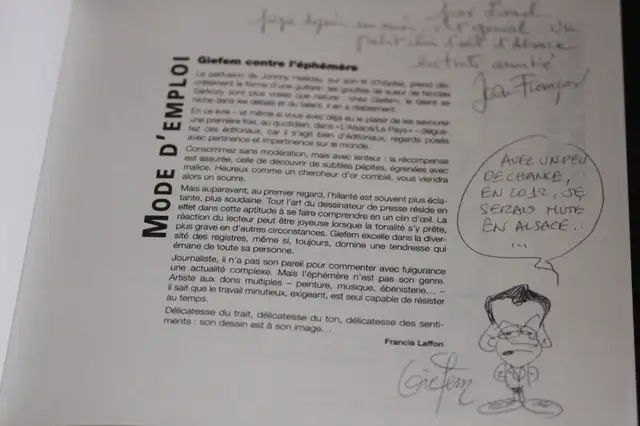 pour Lionel
MODE D'EMPLOI
Giefem contre l'éphémère
La perfusion de Johnny Halliday, sur son lit d'hôpital, prend dis-
crètement la forme d'une guitare ; les gouttes de sueur de Nicolas
Sarkozy sont plus vraies que nature : chez Giefem, le talent se
niche dans les détails et du talent, il en a diablement.
En ce livre – et même si vous avez déjà eu le plaisir de les savourer
une première fois, au quotidien, dans « L'Alsace/Le Pays » – dégus-
tez ces éditoriaux, car il s'agit bien d'éditoriaux, regards posés
avec pertinence et impertinence sur le monde.
Consommez sans modération, mais avec lenteur : la récompense
est assurée, celle de découvrir de subtiles pépites, égrenées avec
malice. Heureux comme un chercheur d'or comblé, vous viendra
alors un sourire.
Mais auparavant, au premier regard, l'hilarité est souvent plus écla-
tante, plus soudaine. Tout l'art du dessinateur de presse réside en
effet dans cette aptitude à se faire comprendre en un clin d'œil. La
réaction du lecteur peut être joyeuse lorsque la tonalité s'y prête,
plus grave en d'autres circonstances. Giefem excelle dans la diver-
sité des registres, même si, toujours, domine une tendresse qui
émane de toute sa personne.
Journaliste, il n'a pas son pareil pour commenter avec fulgurance
une actualité complexe. Mais l'éphémère n'est pas son genre.
Artiste aux dons multiples – peinture, musique, ébénisterie... –
il sait que le travail minutieux, exigeant, est seul capable de résister
au temps.
Délicatesse du trait, délicatesse du ton, délicatesse des senti-
ments : son dessin est à son image...
Francis Laffon
AVEC UN PEU
DE CHANCE,
EN 2012, JE
SERAIS MUTÉ
EN ALSACE..
...
Giefem